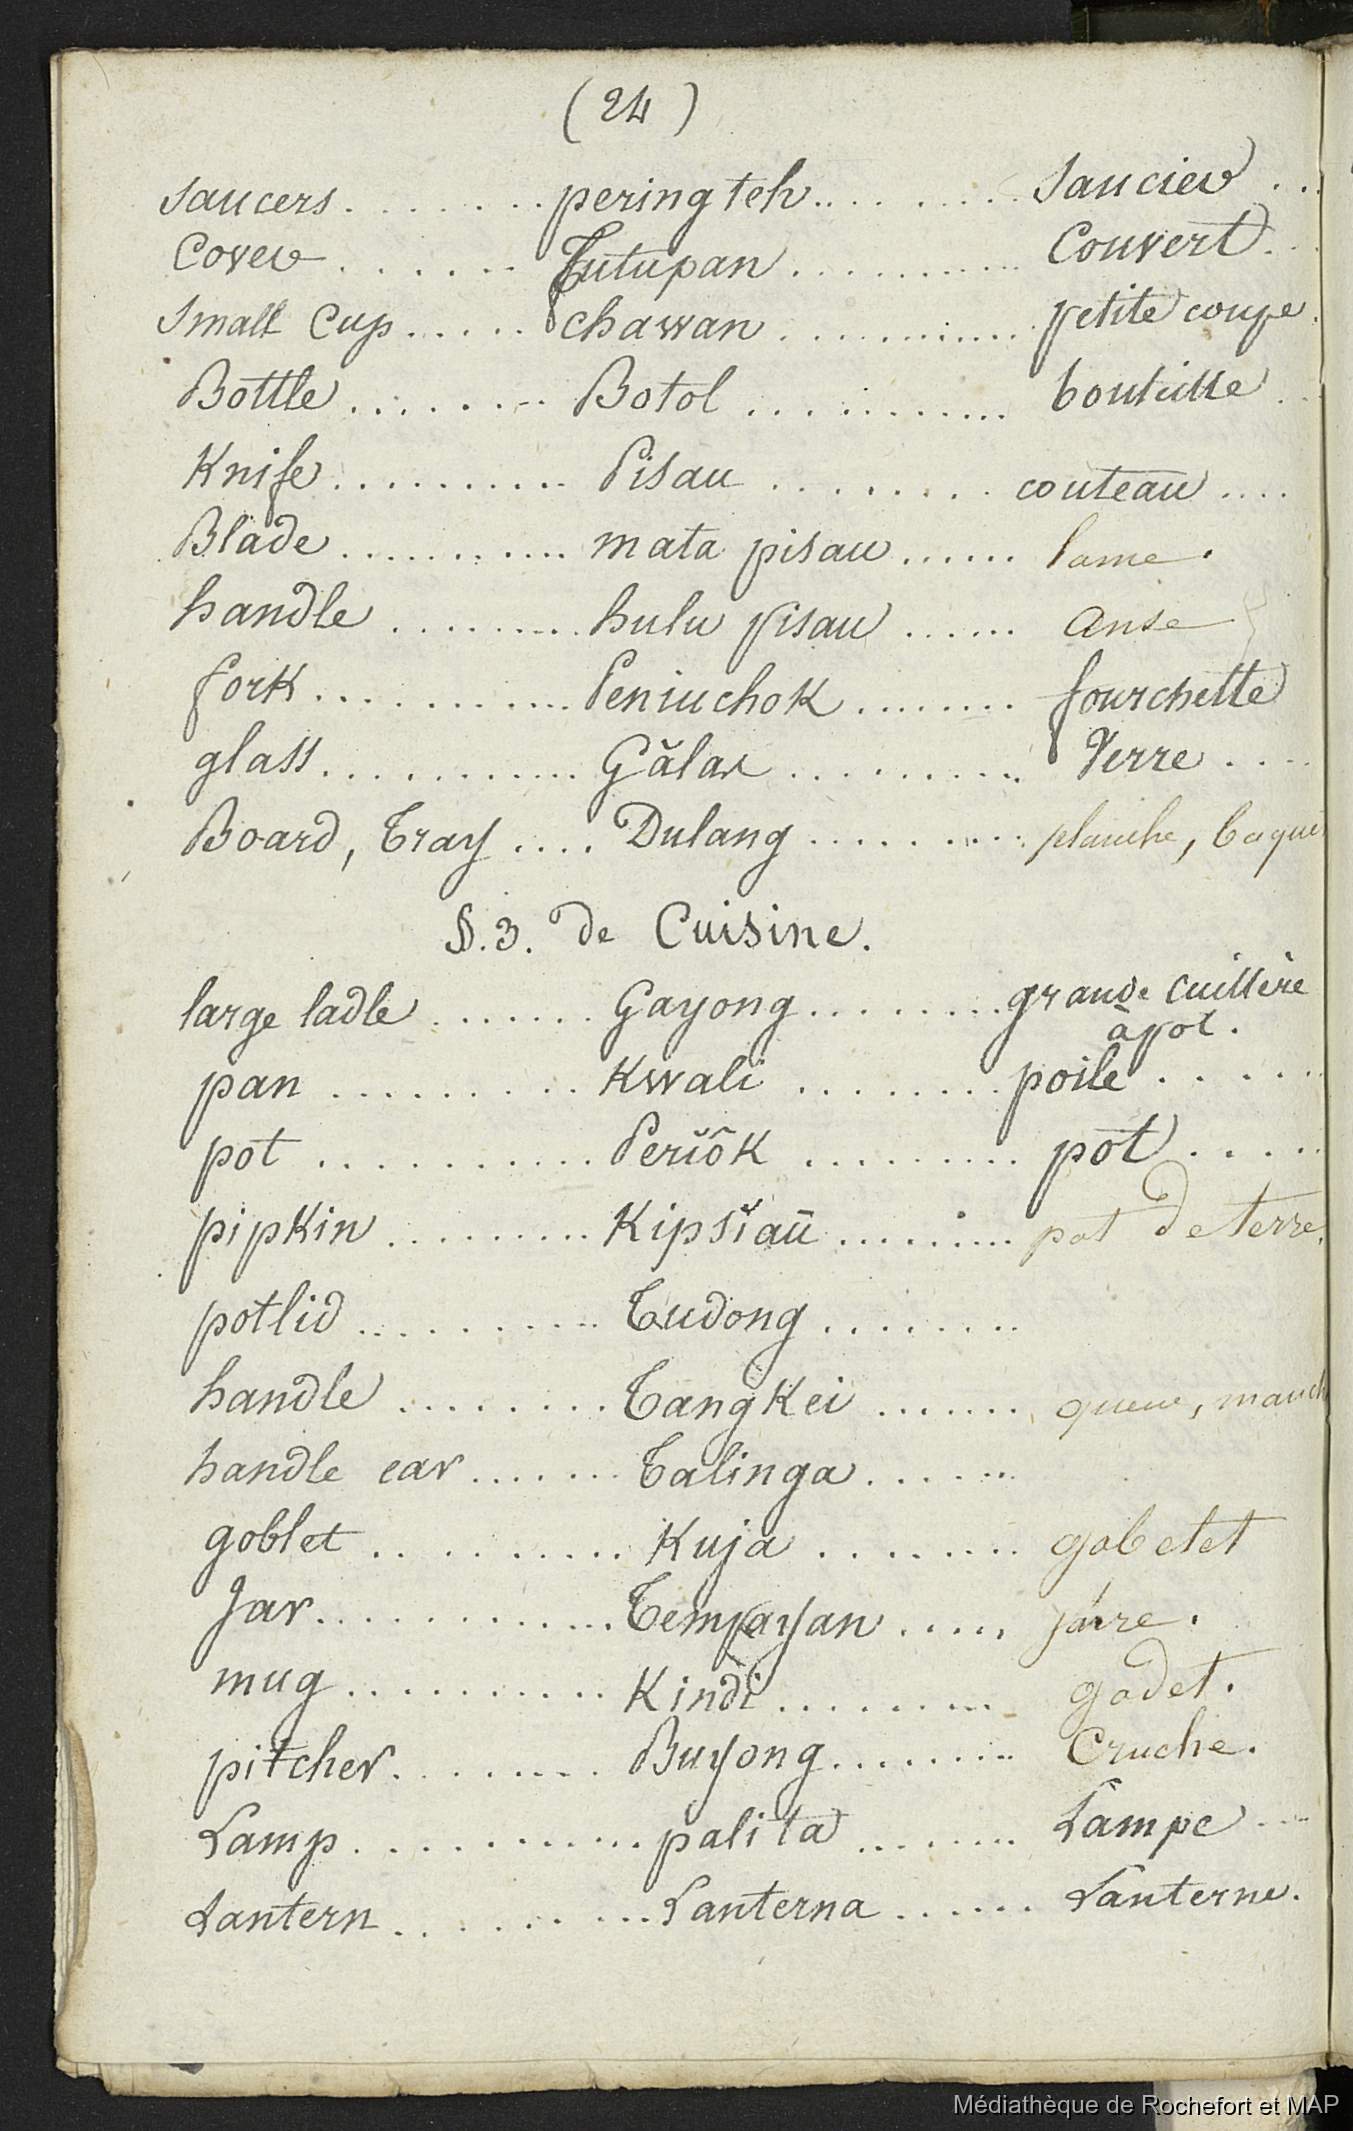 (24)
saucers........pering teh..........Saucier...
Cover.......Tutupan...........Couvert...
Small Cup.....chawan...........petite coupe.
Bottle........Botol...........bouteille..
Knife..........Pisau........couteau....
Blade...........mata pisau......lame.
handle.........hulu pisau......anse
fork...........Peniuchok........fourchette
glass...........Gălas..........Verre....
Board, Tray....Dulang..........planche, baque
§.3. de Cuisine.
large ladle.......Gayong........grande Cuillère
à pot.
pan.........Kwali........poile......
pot..........Perĭôk.........pot.....
pipkin.........Kipsĭaū.........pot de terre.
potlid..........Tudong........
handle........Tangkei.......queue, manch
handle ear.......Talinga......
goblet..........Kuja........gobelet
Jar............Tempayan.....jarre.
mug..........Kindi........godet.
pitcher........Buyong........Cruche.
Lamp...........palita.......Lampe...
Lantern.........Lanterna......Lanterne.
Médiathèque de Rochefort et MAP